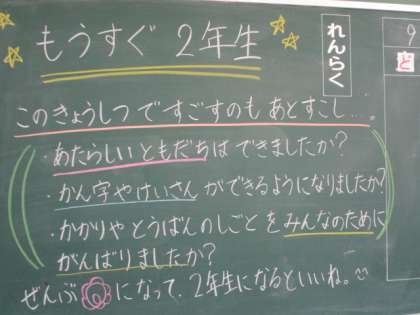 もうすぐ 2年生
れんらく
9
ど
このきょうしつですごすのもあとすこし...
・あたらしいともだちはできましたか?
・かん字やけいさんができるようになりましたか?
・かかりやとうばんのしごとをみんなのために
がんばりましたか?
ぜんぶ になって、2年生になるといいね。